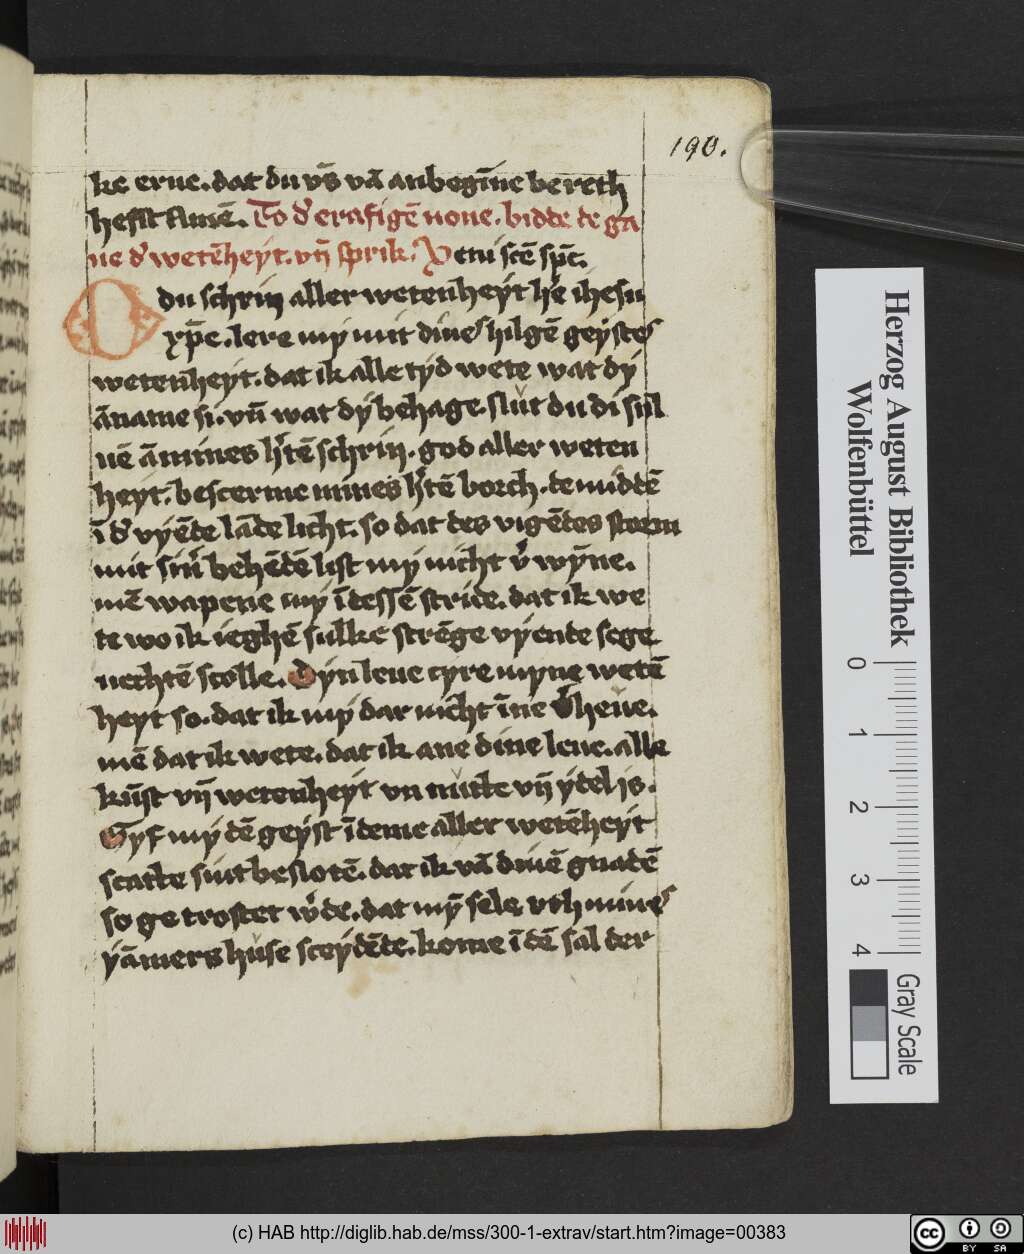 190.
ke erue. dat du vs̄ vā anbegīne bereth
hefst Amē. To d' erafigē none. bidde de ga
ue d' wetēheyt. vn̄ sprik. Veni scē spc̄.
O du schrin aller wetenheyt he' ihesu
xpe̅. lere my mit dines hilgē geystes
wetenheyt. dat ik alle tyd wete wat dy
āname si. vn̄ wat dy behage. slut du di sul
uē ā mines h'tē schrin. god aller weten
heyt. bescerme mines h'tē borch. de middē
ī d' vyēde lāde licht. so dat des vigēdes storm
mit sin' behēdē list my nicht v' wȳne.
mē wapene my ī dessē stride. dat ik we
te wo ik ieghē sulke strēge vyende sege
uechtē scolle. Dyn leue cyre myne wetē
heyt so. dat ik my dar nicht īne v'heue.
mē dat ik wete. dat ik ane dine leue. alle
kūst vn̄ wetenheyt vn nutte vn̄ ydel is.
Gyf my dē geyst ī deme aller wetēheyt
scatte sint beslotē. dat ik vā dinē gnadē
so ge trostet w'de. dat mȳ sele vth mines
yāmers huse sceydēde. kome ī dē sal der
Herzog August Bibliothek
Wolfenbüttel
0 1 2 3 4
Gray Scale
(c) HAB http://diglib.hab.de/mss/300-1-extrav/start.htm?image=00383
cc BY SA